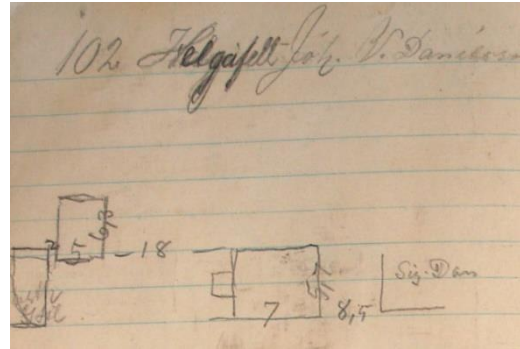 102 Helgafell Jóh. V. Daníelsson
5 6,3
18
7
8,5
Sig. Dan